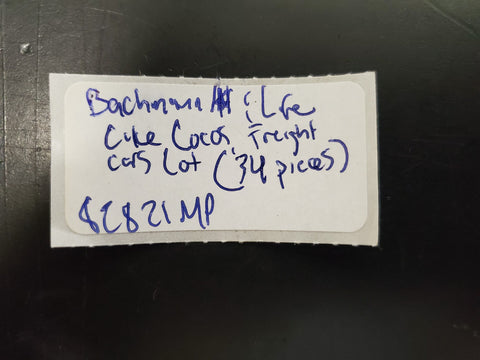 Bachmann & Life
Like Locos, Freight
cars Lot (34 pieces)
82821MP